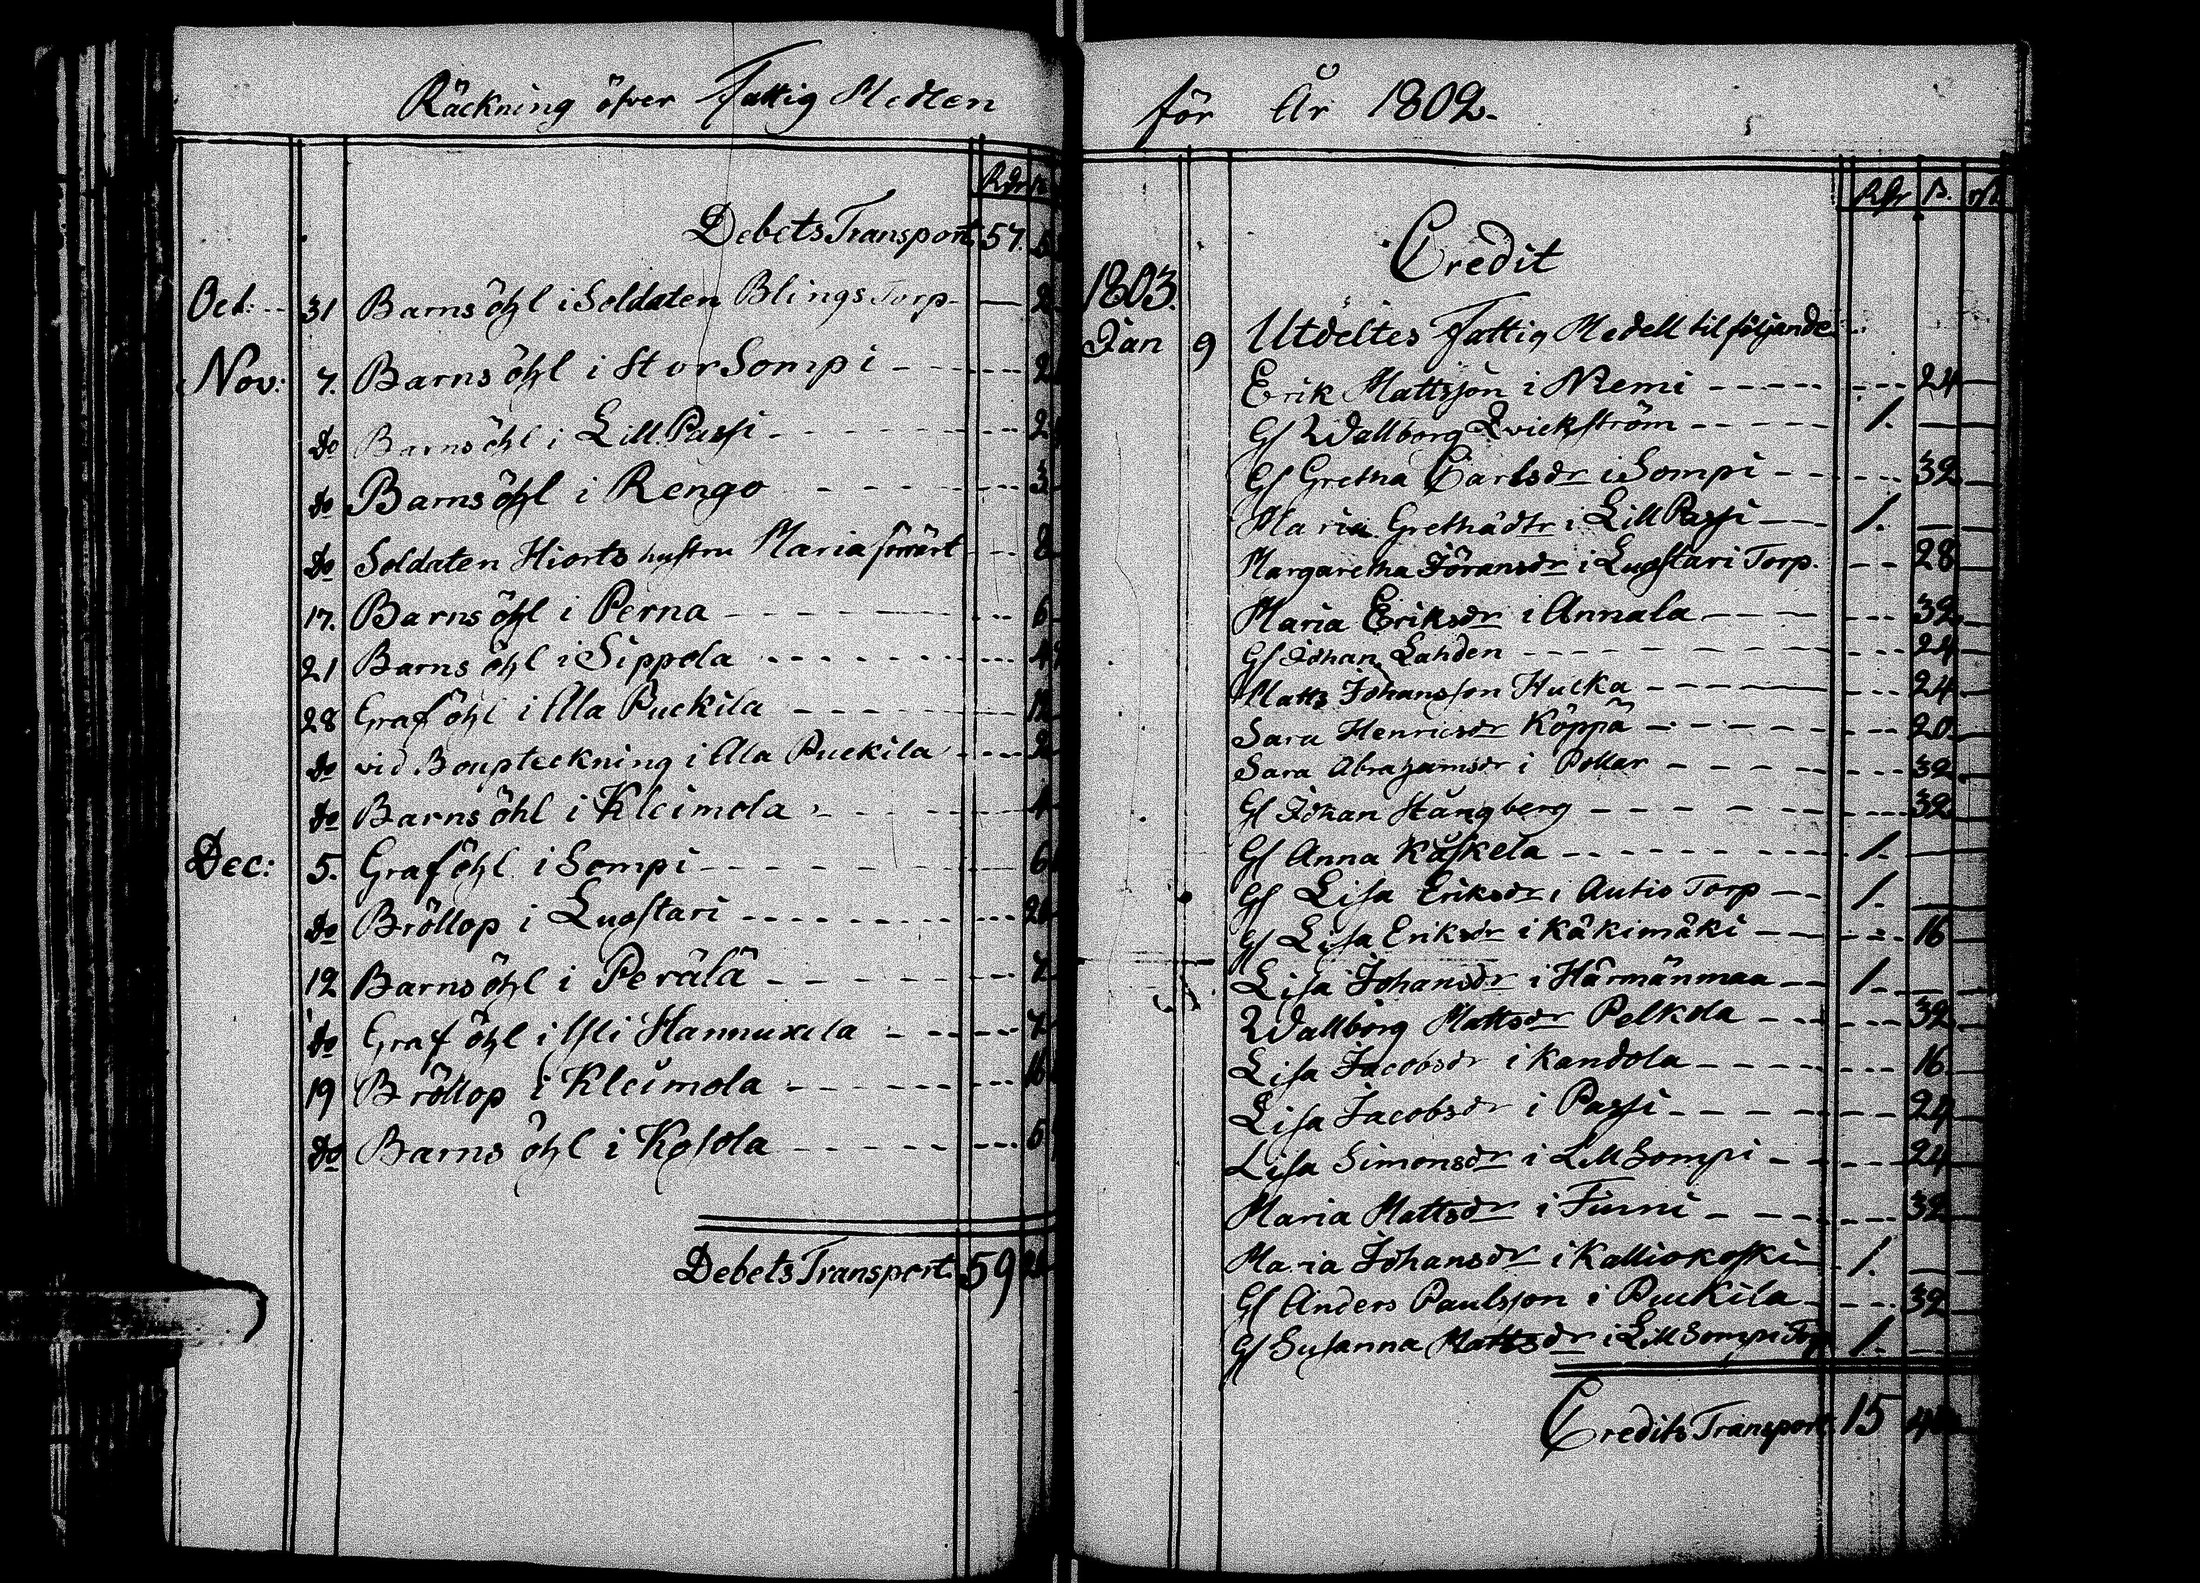 Räckning öfver Fattig Medlen
Rdr
Debets Transport 57.
Oct: 31 Barnsöhl i Soldaten Blings Torp
Nov: 7. Barnsöhl i StorSompi
do Barnsöhl i Lill Passi
do Barnsöhl i Rengo 3
do Soldaten Hiorts hustru Maria 8
17. Barnsöhl i Perna 6
21 Barnsöhl i Sippola
28 Graföhl i Ala Puckila 12
do vid Boupteckning i Ala Puckila 2
do Barnsöhl i Kleimola 4
Dec: 5. Graföhl i Sompi 6
do Bröllop i Luostari
12 Barnsöhl i Perälä 7
do Graföhl i Ylli Hannuxela 7
19 Bröllop i Kleimola 16
do Barnsöhl i Kosola
Debets Transport. 59
för År 1802.
Rdr ß. rst
Credit
1803.
Jan 9 Utdeltes Fattig Medell til följande
Erik Mattsson i Niemi 24
Gl Wallborg Qvickström 1.
Gl Gretha Carlsdr i Sompi 32
Maria Grethädtr i Lill Passi 1.
Margaretha Jöransdr i Luostari Torp. 28
Maria Eriksdr i Annala 32
Gl Johan Lahden 24
Matts Johansson Hucka 24
Sara Henricsdr Köppä 20
Sara Abrahamsdr i Pollar 32
Gl Johan Stångberg 32
Gl Anna Kaskela 1.
Gl Lisa Eriksdr i Autio Torp 1.
Gl Lisa Eriksdr i Käkimäki 16
Lisa Johansdr i Härmänmaa 1.
Wallborg Mattsdr Pelkola 32
Lisa Jacobsdr i Kandola 16
Lisa Jacobsdr i Passi 24
Lisa Simonsdr i Lill Sompi 24
Maria Mattsdr i Finni 32
Maria Johansdr i Kalliokoski 1.
Gl Anders Paulsson i Puckila 32
Gl Susanna Mattsdr i Lill Sompi Torp 1.
Credits Transport. 15